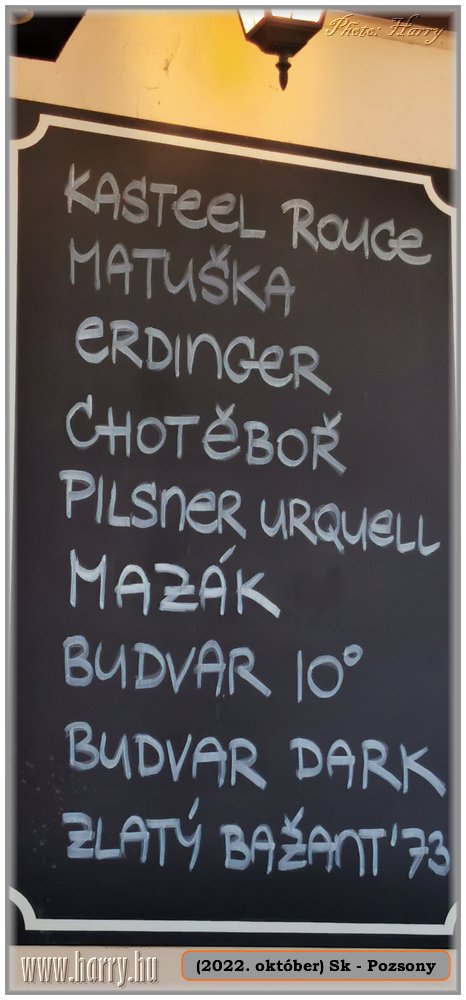 Photo: Harry
KASTEEL ROUGE
MATUŠKA
ERDINGER
CHOTĚBOŘ
PILSNER URQUELL
MAZÁK
BUDVAR 10°
BUDVAR DARK
ZLATÝ BAŽANT '73
www.harry.hu
(2022. október) Sk - Pozsony